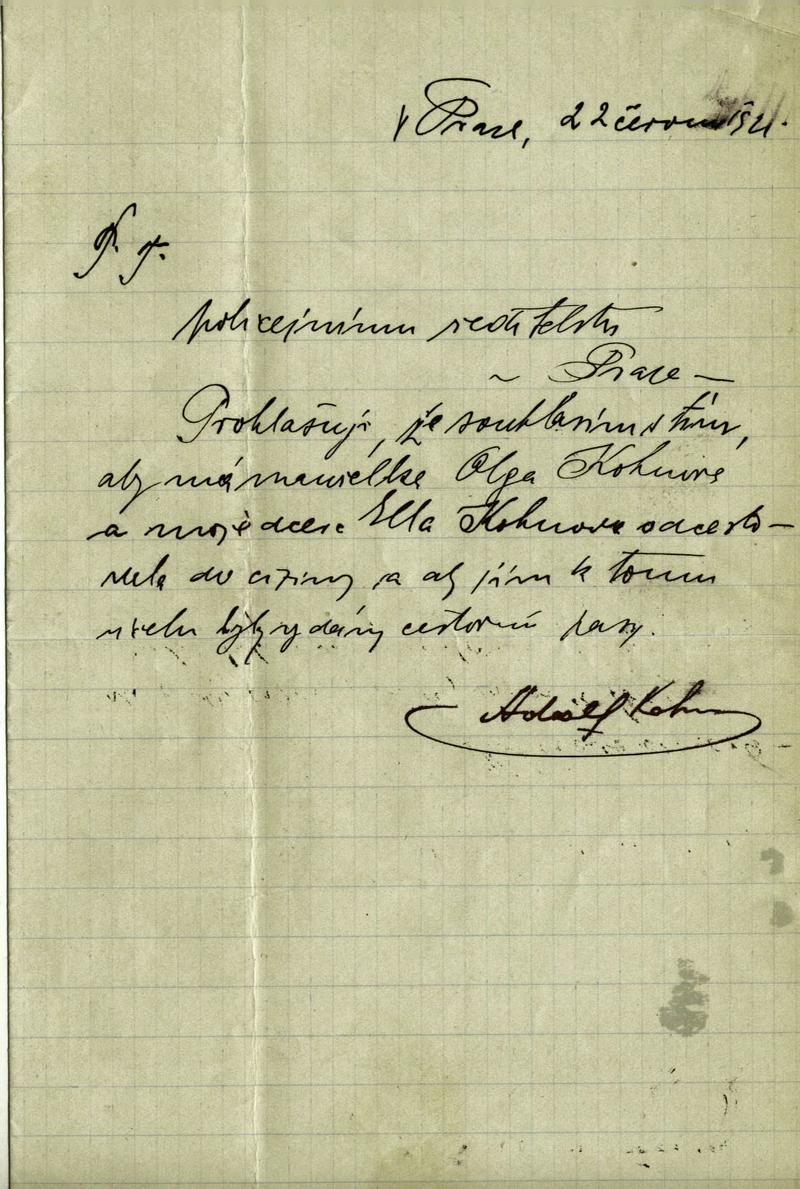 V Praze, 22 června 1921.
P. T.
policejnímu ředitelství
v Praze
Prohlašuji, že souhlasím s tím,
aby má manželka Olga Kohnová
a moje dcera Ella Kohnova odcesto-
vala do ciziny a aby jim k tomu
účelu byly vydány cestovní pasy.
Adolf Kohn